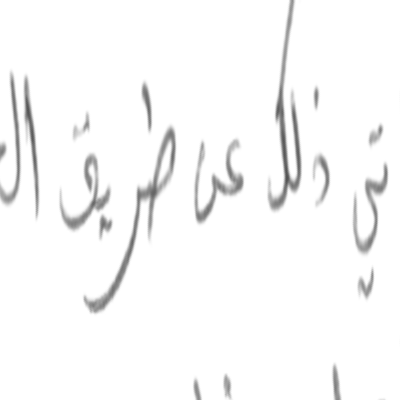 تي ذلك عن طريق ال